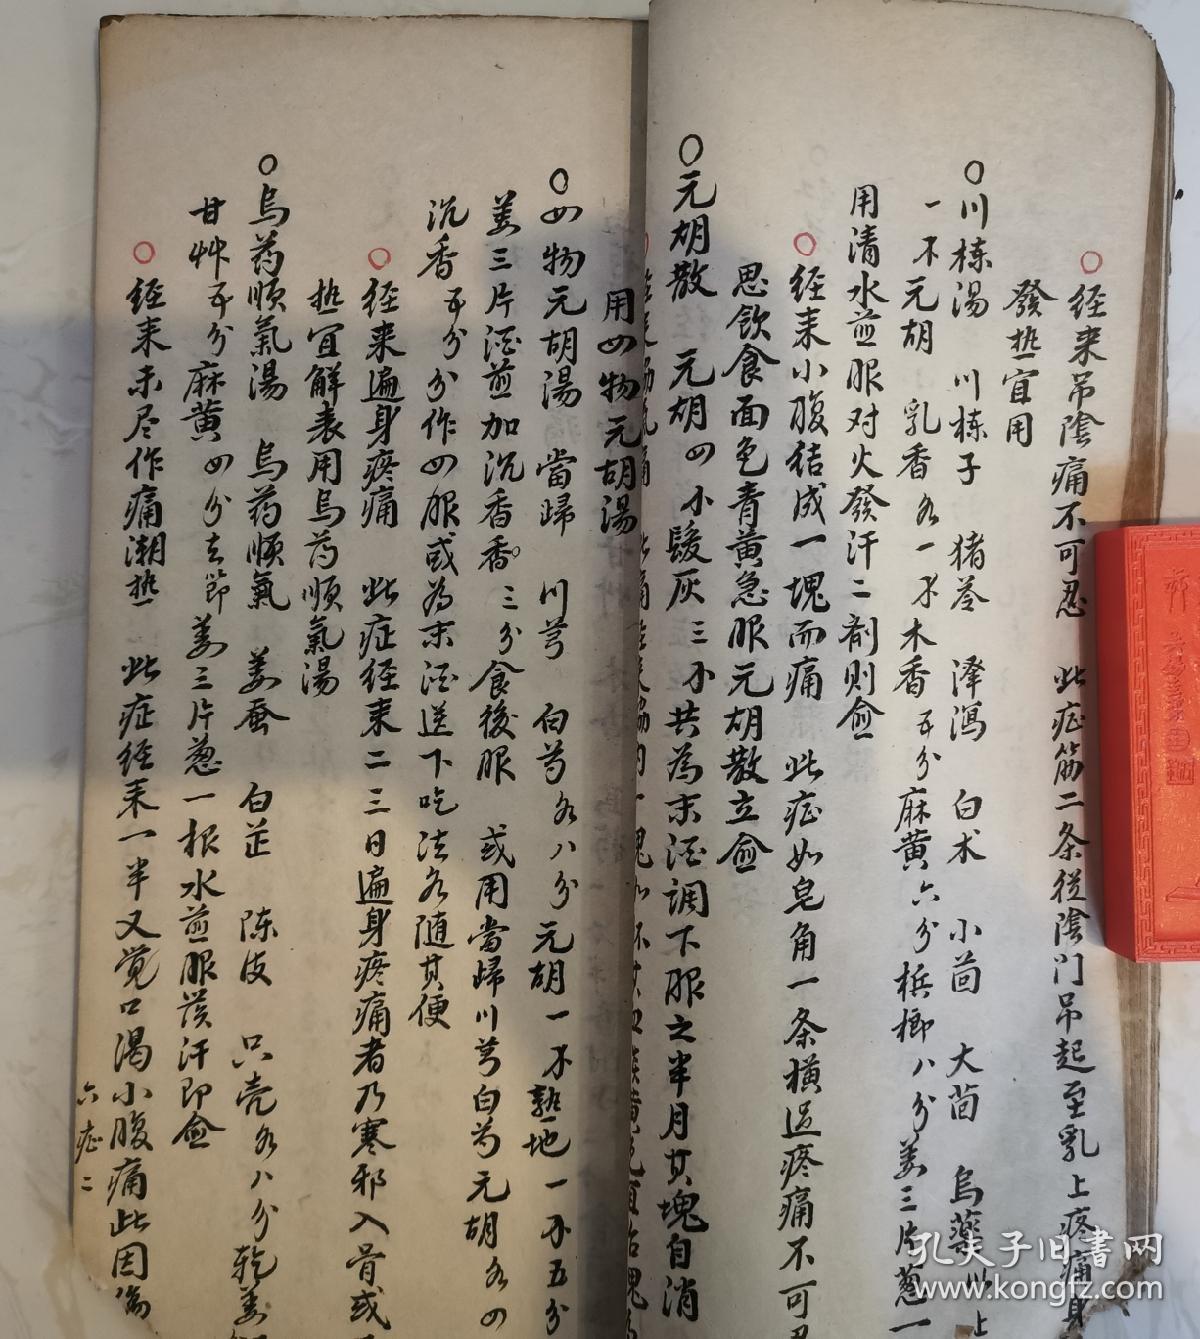 ○经来吊陰痛不可忍　此症筋二条從陰门吊起至乳上疼痛身
發热宜用
○川栋湯　川栋子　猪苓　泽瀉　白术　小茴　大茴　烏藥
一不元胡　乳香各一不木香五分麻黄六分梹榔八分姜三片葱一
用清水煎服对火發汗二剤则愈
○经来小腹结成一塊而痛　此症如皂角一条横过疼痛不可忍
思飲食面色青黄急服元胡散立愈
○元胡散　元胡四小髮灰三小共為末酒調下服之半月其塊自消
用四物元胡湯
○四物元胡湯　當歸　川芎　白芍各八分元胡一不熟地一不五分
姜三片酒煎加沉香三分食後服　或用當歸川芎白芍元胡各四
沉香五分分作四服或为末酒送下吃法各随其便
○经来遍身疼痛　此症经来二三日遍身疼痛者乃寒邪入骨或
热宜解表用乌药順氣湯
○烏药順氣湯　烏药順氣　姜蚕　白芷　陈皮　只壳各八分乾姜
甘艸五分麻黄四分去節姜三片葱一根水煎服發汗即愈
○经来未尽作痛潮热　此症经来一半又觉口渴小腹痛此因
六症二
孔夫子旧書网
www.kongfz.com